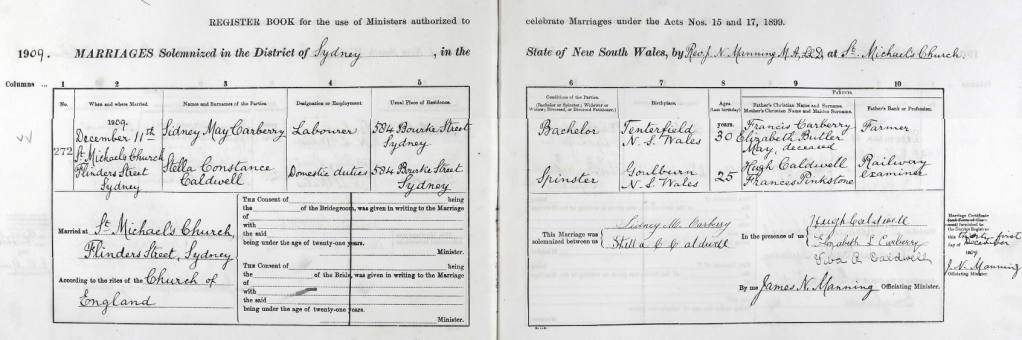 REGISTER BOOK for the use of Ministers authorized to celebrate Marriages under the Acts Nos. 15 and 17, 1899.
1909. MARRIAGES Solemnized in the District of Sydney, in the State of New South Wales, by Rev. J. N. Manning M.A., LL.D, at St. Michael's Church.
Columns ... 1 2 3 4 5 6 7 8 9 10
No. When and where Married. Names and Surnames of the Parties. Designation or Employment. Usual Place of Residence.
Conditions of the Parties. Birthplace. Ages Parents.
(Bachelor or Spinster; Widower or Widow; Divorced, or Divorced Petitioner.) (Last birthday) Father's Christian Name and Surname. Mother's Christian Name and Maiden Surname. Father's Rank or Profession.
272
1909.
December 11th
St. Michael's Church
Flinders Street
Sydney
Sidney May Carberry
Labourer
584 Bourke Street
Sydney
Bachelor
Tenterfield
N. S. Wales
years.
30
Francis Carberry
Elizabeth Butler
May, deceased
Farmer
Stella Constance
Caldwell
Domestic duties
584 Bourke Street
Sydney
Spinster
Goulburn
N. S. Wales
25
Hugh Caldwell
Frances Pinkstone
Railway
Examiner
Married at St. Michael's Church,
Flinders Street, Sydney
According to the rites of the Church of
England
THE CONSENT of being
the of the Bridegroom, was given in writing to the Marriage
of
with
the said
being under the age of twenty-one years.
Minister.
THE CONSENT of being
the of the Bride, was given in writing to the Marriage
of
with
the said
being under the age of twenty-one years.
Minister.
This Marriage was
solemnized between us
Sidney M. Carberry
Stella C Caldwell
In the presence of us
Hugh Caldwell
Elizabeth Carberry
Caldwell
By me James N. Manning Officiating Minister.
Marriage Certificate
the District Registrar
this thirty first
day of December
1909
J. N. Manning
Officiating Minister.